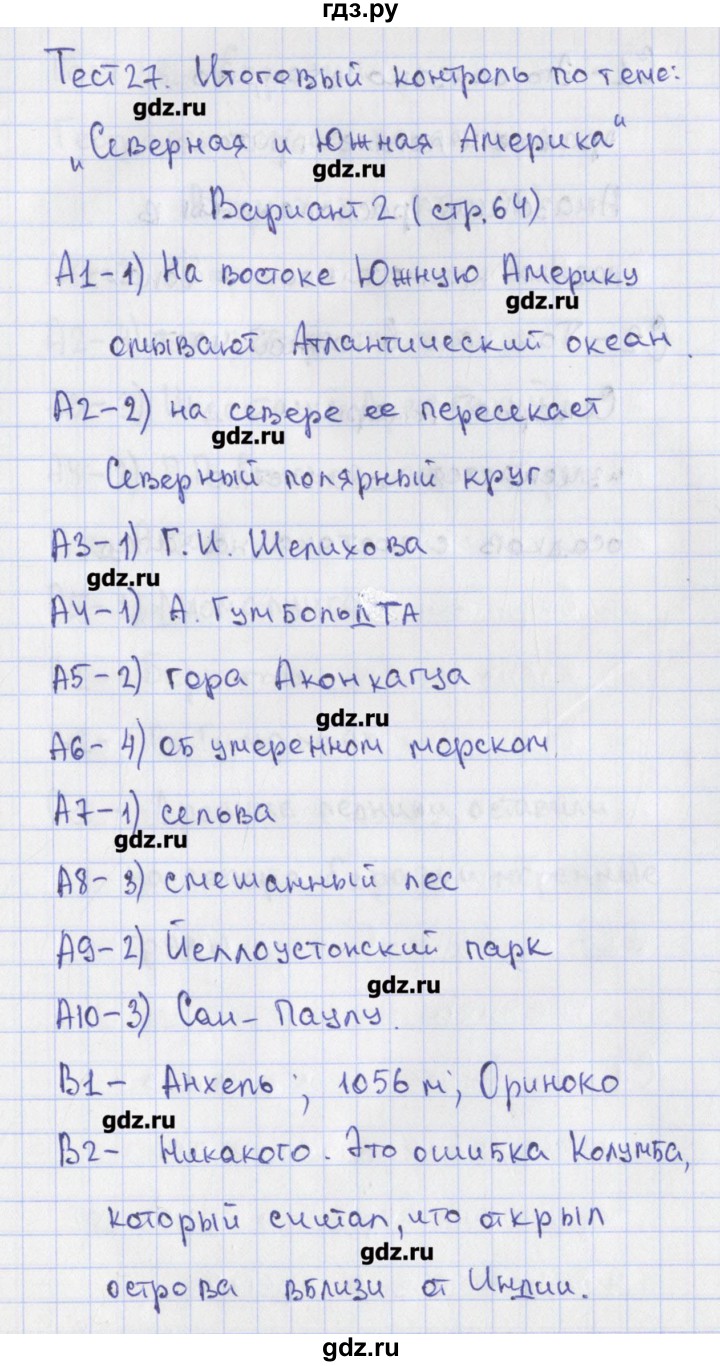 гдз.ру
Тест 27. Итоговый контроль по теме:
gdz.ru
„Северная и Южная Америка“
gdz.ru
Вариант 2 (стр. 64)
А1-1) На востоке Южную Америку
gdz.ru
омывают Атлантический океан.
А2-2) на севере ее пересекает
gdz.ru
Северный полярный круг
А3-1) Г. И. Шелихова
gdz.ru
А4-1) А. Гумбольдта
А5-2) гора Аконкагуа
gdz.ru
А6-4) об умеренном морском.
А7-1) сельва
gdz.ru
А8-3) смешанный лес
А9-2) Йеллоустонский парк
gdz.ru
А10-3) Сан-Паулу.
В1- Анхель; 1056 м; Ориноко
gdz.ru
В2- Никакого. Это ошибка Колумба,
который считал, что открыл
gdz.ru
острова вблизи от Индии.
gdz.ru